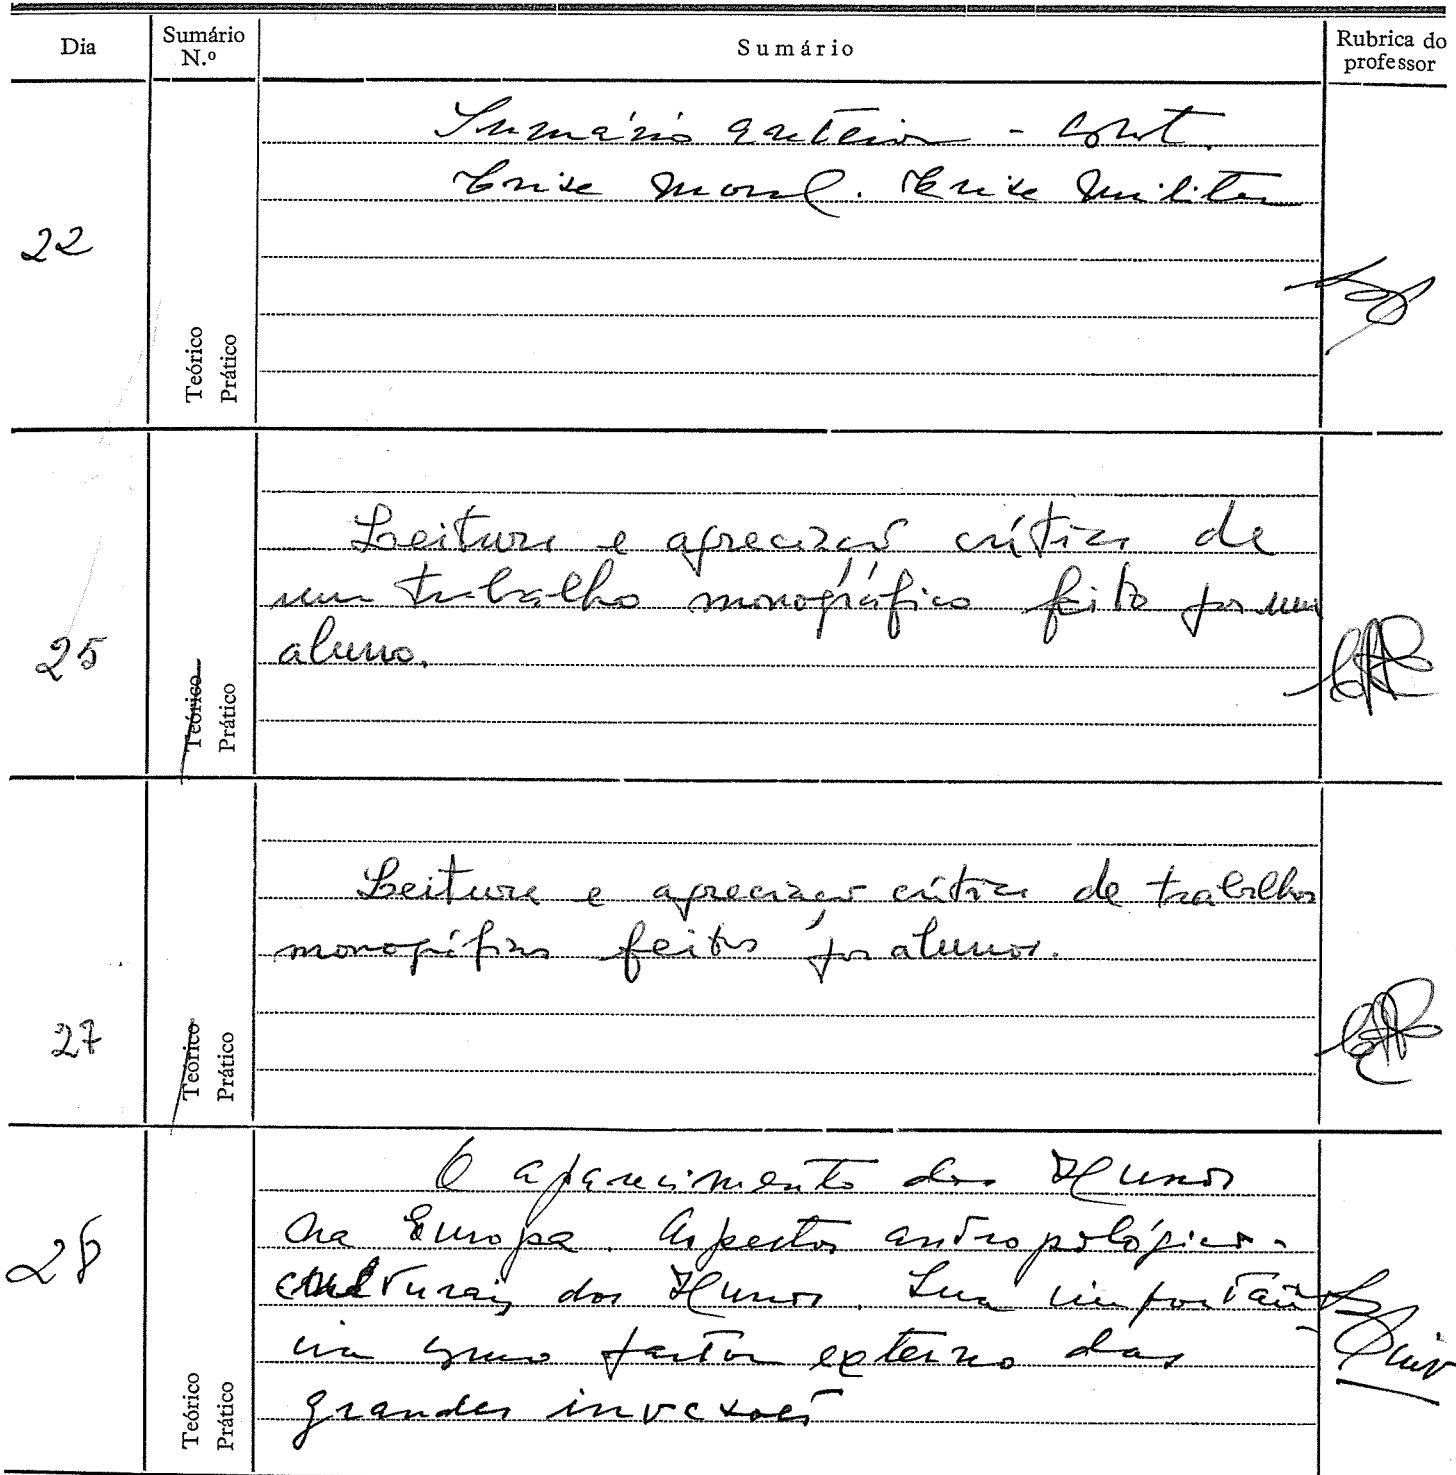 Dia
Sumário N.º
Sumário
Rubrica do professor
Sumário anterior - Cont.
Crise Moral. Crise Militar
22
Teórico
Prático
Leitura e apreciação crítica de
um trabalho monográfico feito por um
aluno.
25
Teórico
Prático
Leitura e apreciação crítica de trabalhos
monográficos feitos por alunos.
27
Teórico
Prático
O aparecimento dos Hunos
na Europa. Aspectos antropológico-
culturais dos Hunos. Sua importân-
cia como factor externo das
grandes invasões
28
Teórico
Prático